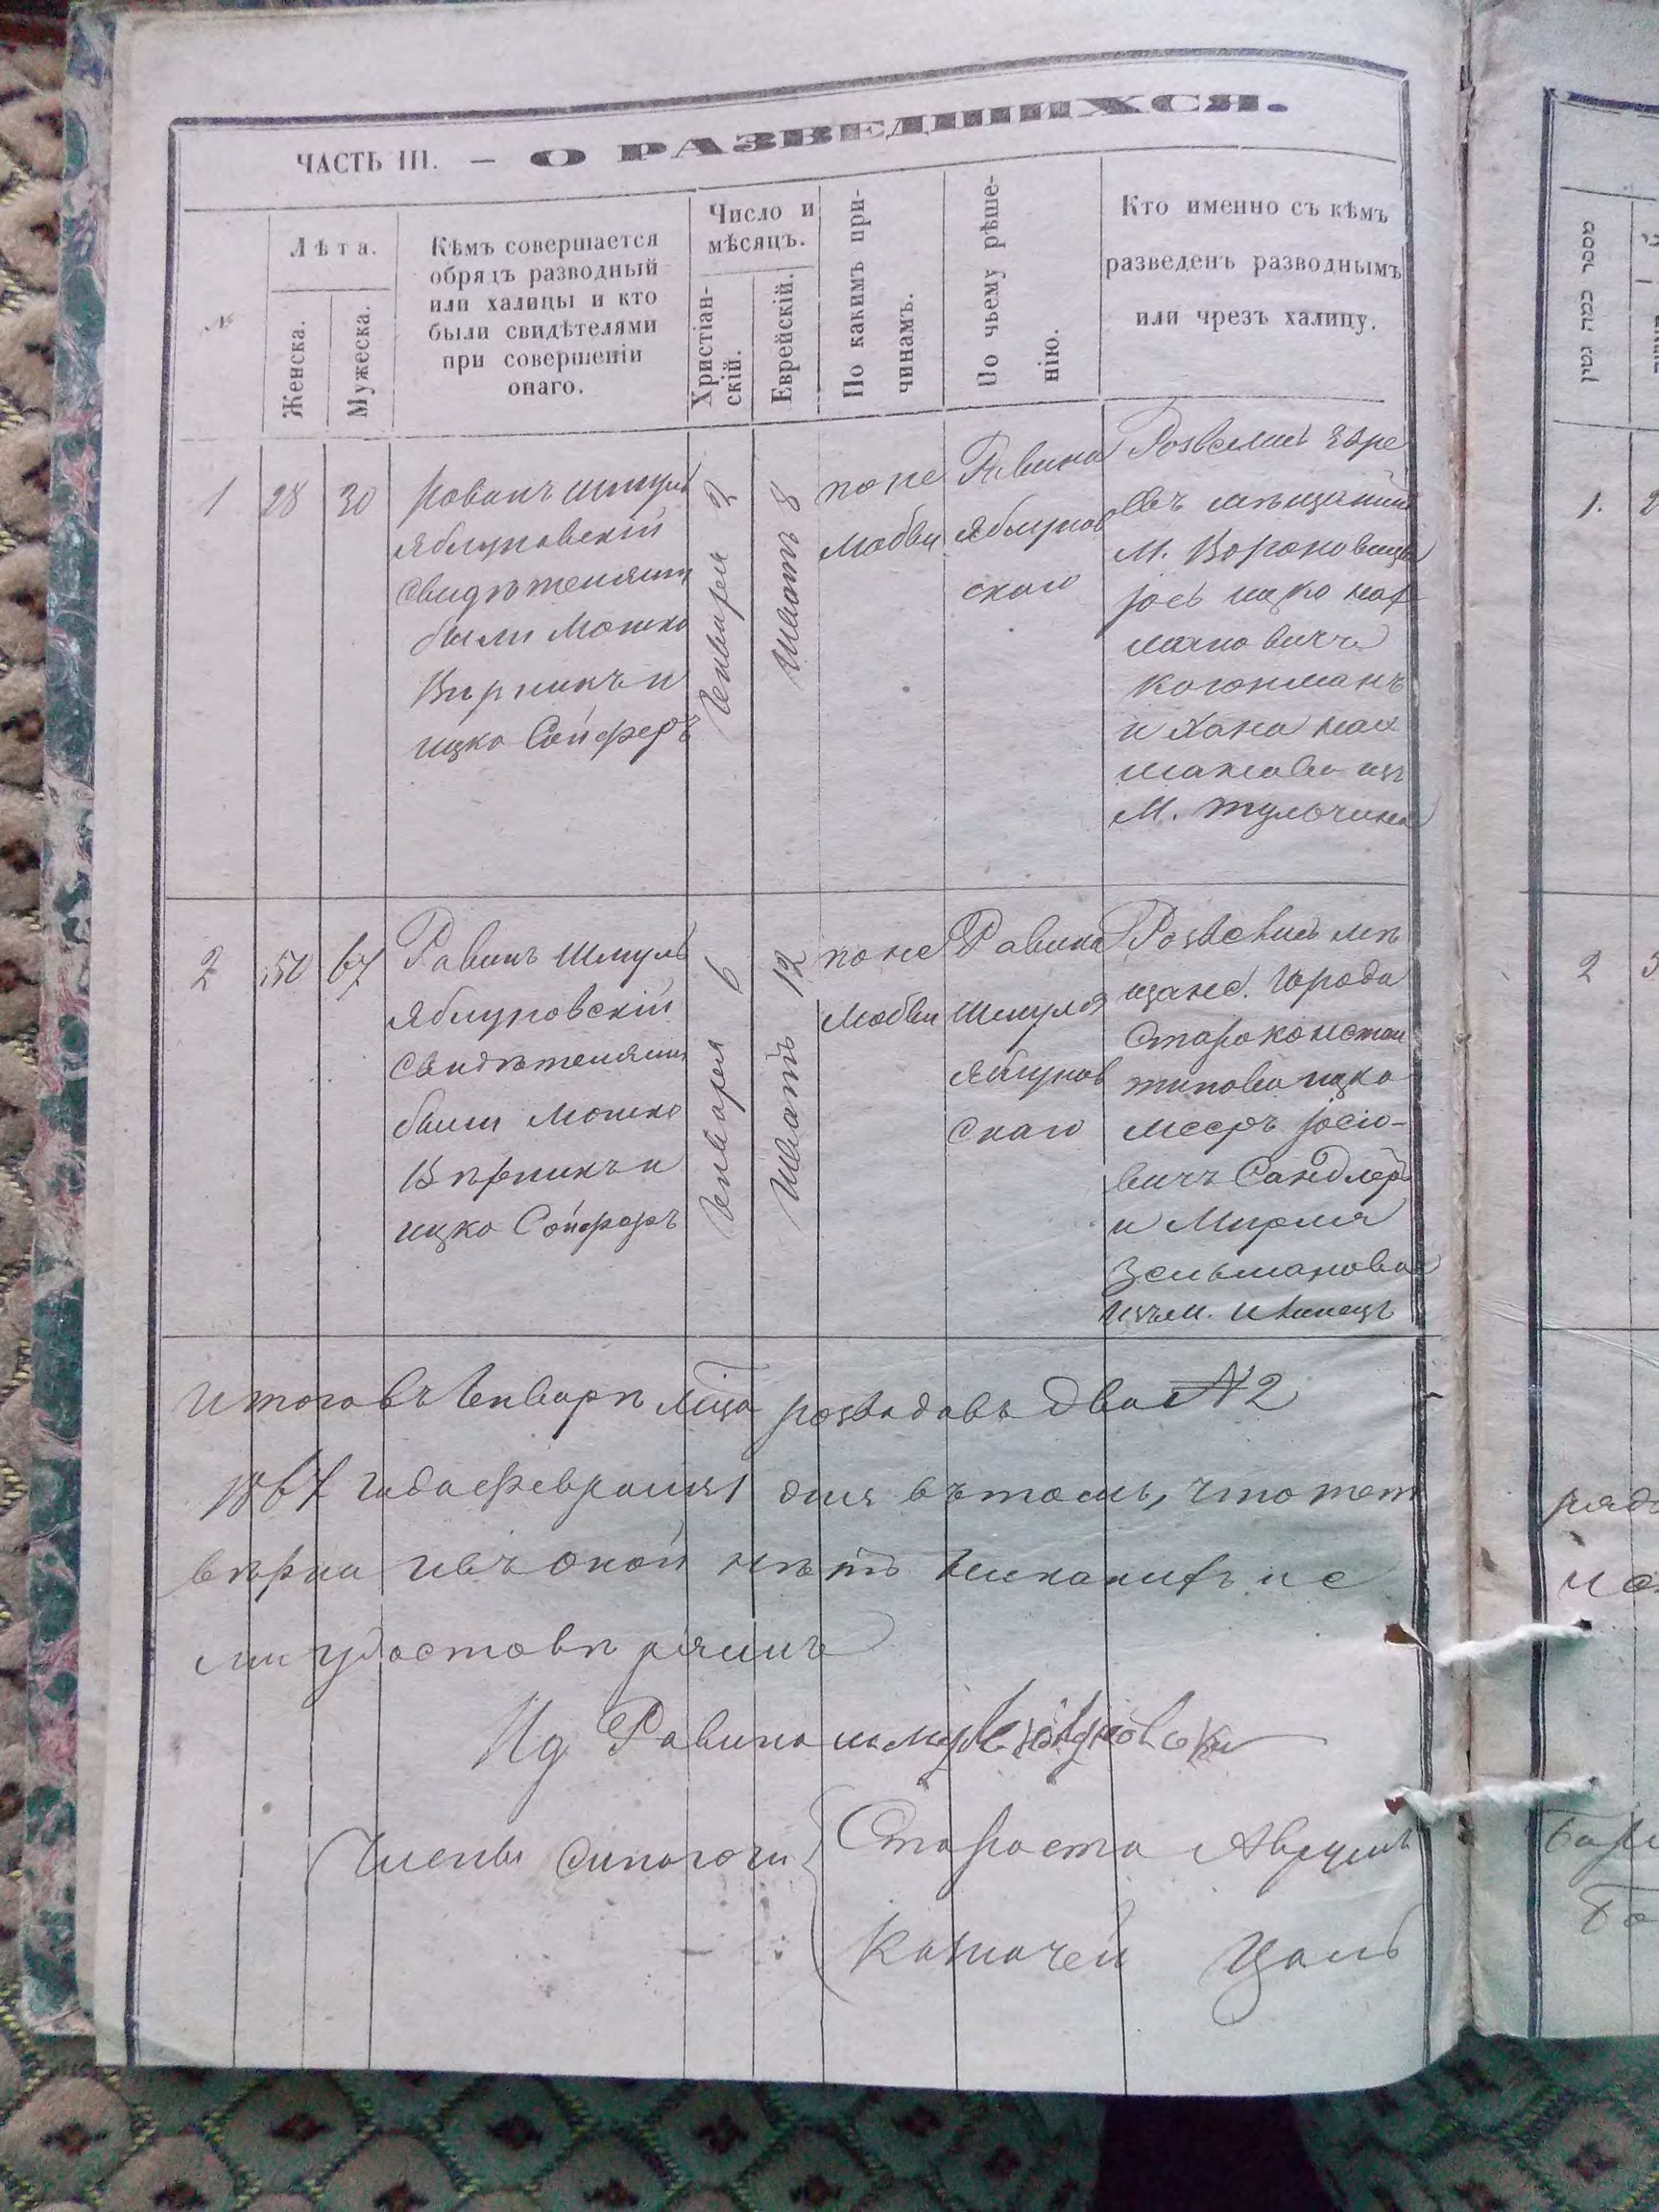 ЧАСТЬ III. — О РАЗВЕДШИХСЯ.
№
Лѣта.
Женска.
Мужеска.
Кѣмъ совершается
обрядъ разводный
или халицы и кто
были свидѣтелями
при совершеніи
онаго.
Число и
мѣсяцъ.
Христіан-
скій.
Еврейскій.
По какимъ при-
чинамъ.
По чьему рѣше-
нію.
Кто именно съ кѣмъ
разведенъ разводнымъ
или чрезъ халицу.
1
28
30
Равинъ Шмуль
Яблуновскій
Свидѣтелями
были Мошко
Вѣрникъ и
ицко Сойферъ
2
Генваря
8
Шватъ
по не
любви
Равина
Яблунов
скаго
Розвелись Евре
М. Вороновицы
іось ицко
Когонманъ
и Хана
изъ
М. Тульчина
2
50
67
Равинъ Шмуль
Яблуновскій
Свидѣтелями
были Мошко
Вѣрникъ и
ицко Сойферъ
6
Генваря
12
Шватъ
по не
любви
Равина
Шмуля
Яблунов
скаго
Розвелись мѣ
щане. Города
Староконстан
тинова ицко
Мееръ іосіо-
вичъ Сандлеръ
и Мирля
Зельманова
изъ М.
Итого въ Генварѣ мца розводовъ два N 2
1867 года февраля 1 дня въ томъ, что
вѣрна и въ оной нѣтъ никакихъ не
Ид Равина Шмуль Яблуновски
Члены синагоги
Староста Аврумъ
Казначей Цаль
מספר כמה גטין
1.
2
2